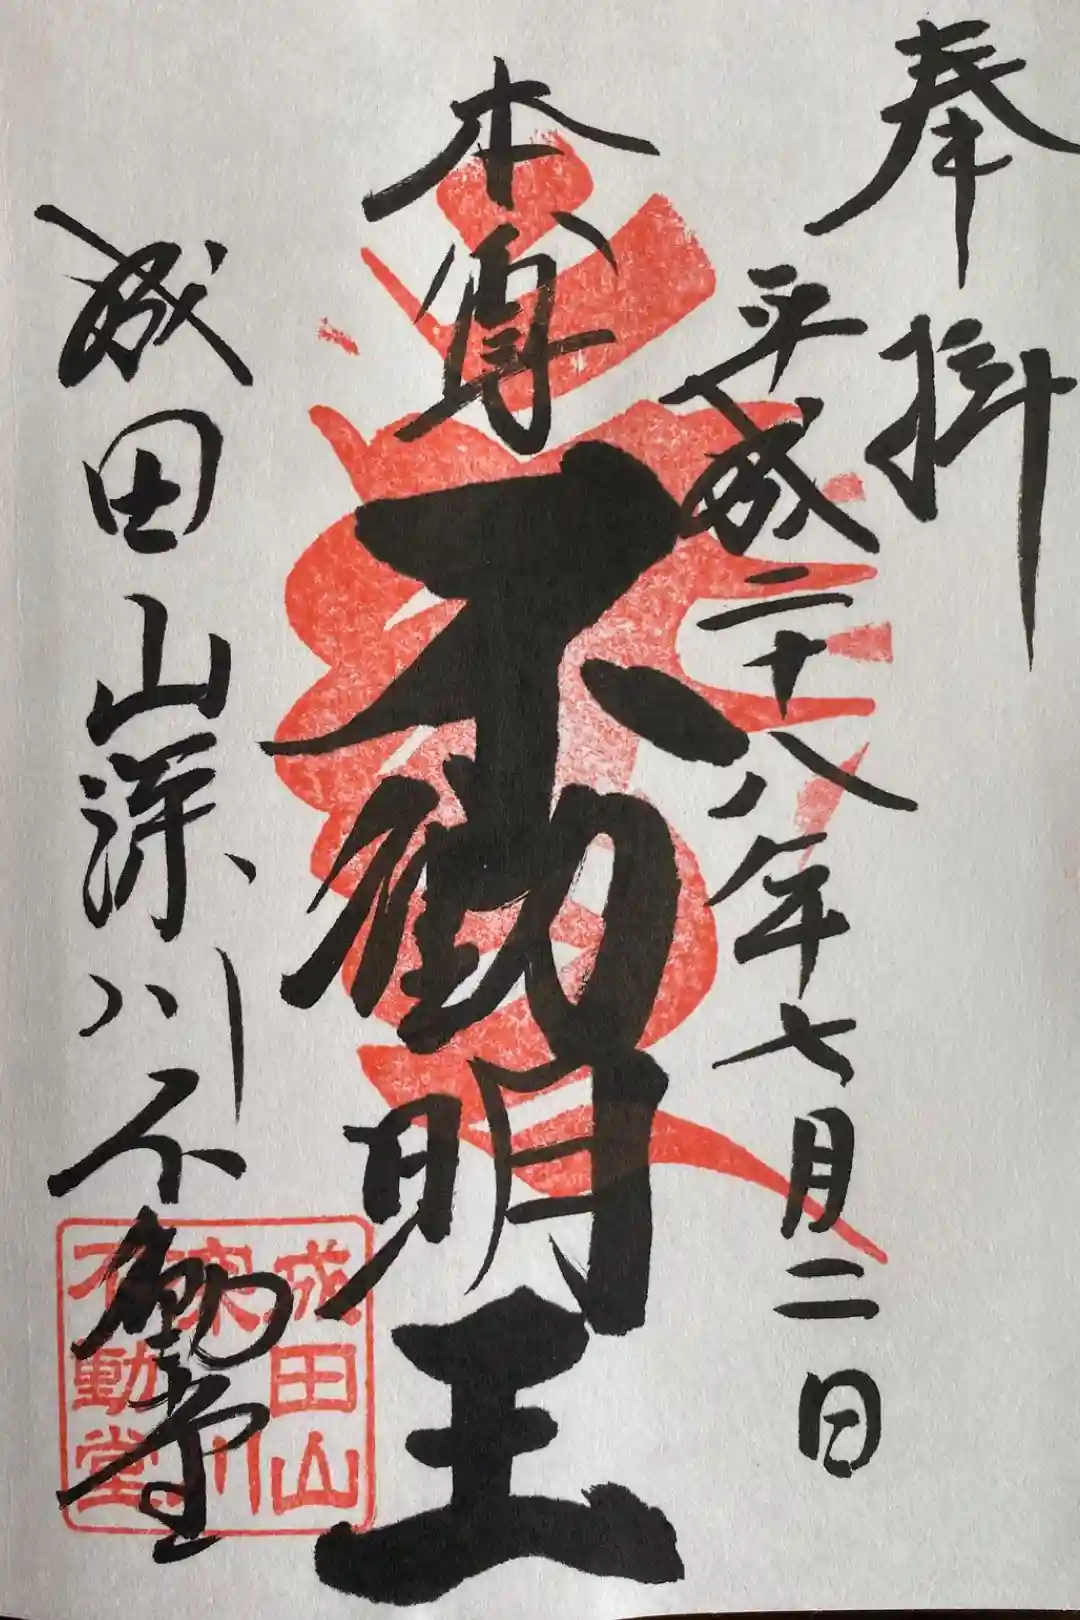 奉拝
平成二十八年七月二日
本尊
不動明王
成田山深川不動堂
成田山
深川
不動堂